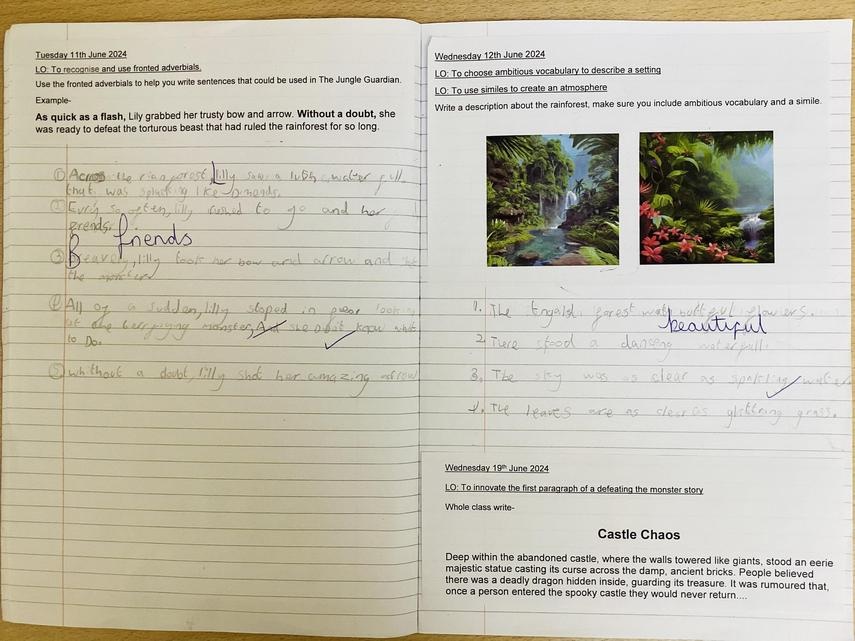 Tuesday 11th June 2024
LO: To recognise and use fronted adverbials.
Use the fronted adverbials to help you write sentences that could be used in The Jungle Guardian.
Example-
As quick as a flash, Lily grabbed her trusty bow and arrow. Without a doubt, she
was ready to defeat the torturous beast that had ruled the rainforest for so long.
① Across the rian forest, Lilly saw a lush water
that was splashing like
② Evry so often, lilly rushed to go and her
frends.
friends
③ Bravely, lilly took her bow and arrow and
the monster
④ All of a sudden, lilly stoped in
at the monster, And she know
to Do.
⑤ whithout a doubt, lilly shot her amazing arrow
Wednesday 12th June 2024
LO: To choose ambitious vocabulary to describe a setting
LO: To use similes to create an atmosphere
Write a description about the rainforest, make sure you include ambitious vocabulary and a simile.
1. The forest flowers.
beautiful
2. There stood a water
3. The sky was as clear as water
4. The leaves are as clear as grass.
Wednesday 19th June 2024
LO: To innovate the first paragraph of a defeating the monster story
Whole class write-
Castle Chaos
Deep within the abandoned castle, where the walls towered like giants, stood an eerie
majestic statue casting its curse across the damp, ancient bricks. People believed
there was a deadly dragon hidden inside, guarding its treasure. It was rumoured that,
once a person entered the spooky castle they would never return....